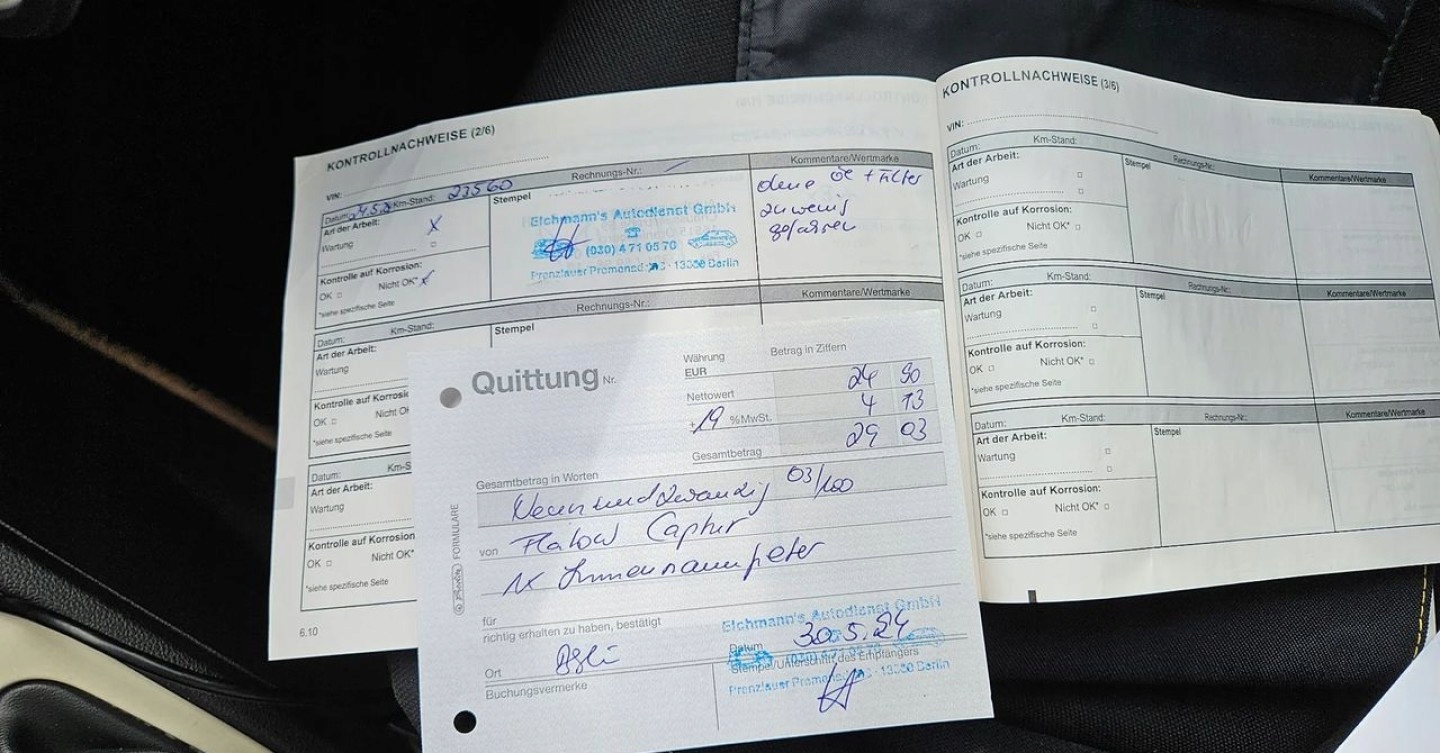 KONTROLLNACHWEISE (2/6)
VIN:
Datum: Km-Stand: 23560
Rechnungs-Nr.:
Kommentare/Wertmarke
Art der Arbeit:
Wartung
X
Kontrolle auf Korrosion:
OK Nicht OK* x
*siehe spezifische Seite
Stempel
Eichmann's Autodienst GmbH
(030) 471 05 70
Prenzlauer Promenad - 13086 Berlin
ohne Öl + Filter
zu wenig
gefahren
Datum: Km-Stand:
Rechnungs-Nr.:
Kommentare/Wertmarke
Art der Arbeit:
Wartung
Stempel
Kontrolle auf Korrosi
OK Nicht OK
*siehe spezifische Seite
Datum: Km-S
Art der Arbeit:
Wartung
Kontrolle auf Korrosion
OK Nicht OK*
*siehe spezifische Seite
6.10
KONTROLLNACHWEISE (3/6)
VIN:
Datum: Km-Stand: Rechnungs-Nr.: Kommentare/Wertmarke
Art der Arbeit:
Stempel
Wartung
Kontrolle auf Korrosion:
OK Nicht OK*
*siehe spezifische Seite
Datum: Km-Stand: Rechnungs-Nr.: Kommentare/Wertmarke
Art der Arbeit:
Stempel
Wartung
Kontrolle auf Korrosion:
OK Nicht OK*
*siehe spezifische Seite
Datum: Km-Stand: Rechnungs-Nr.: Kommentare/Wertmarke
Art der Arbeit:
Stempel
Wartung
Kontrolle auf Korrosion:
OK Nicht OK*
*siehe spezifische Seite
Quittung Nr.
Währung
EUR
Betrag in Ziffern
Nettowert
24 90
+ 19 % MwSt.
4 13
Gesamtbetrag
29 03
Gesamtbetrag in Worten
Neunundzwanzig 03/100
von Captur
1x
für
richtig erhalten zu haben, bestätigt
FORMULARE
Eichmann's Autodienst GmbH
Ort
Datum 30.5.24
Buchungsvermerke
Stempel/Unterschrift des Empfängers
Prenzlauer Promenad - 13086 Berlin